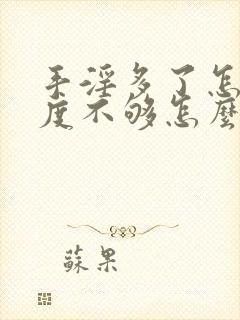 手淫多了怎
度不够怎麼
蘇果